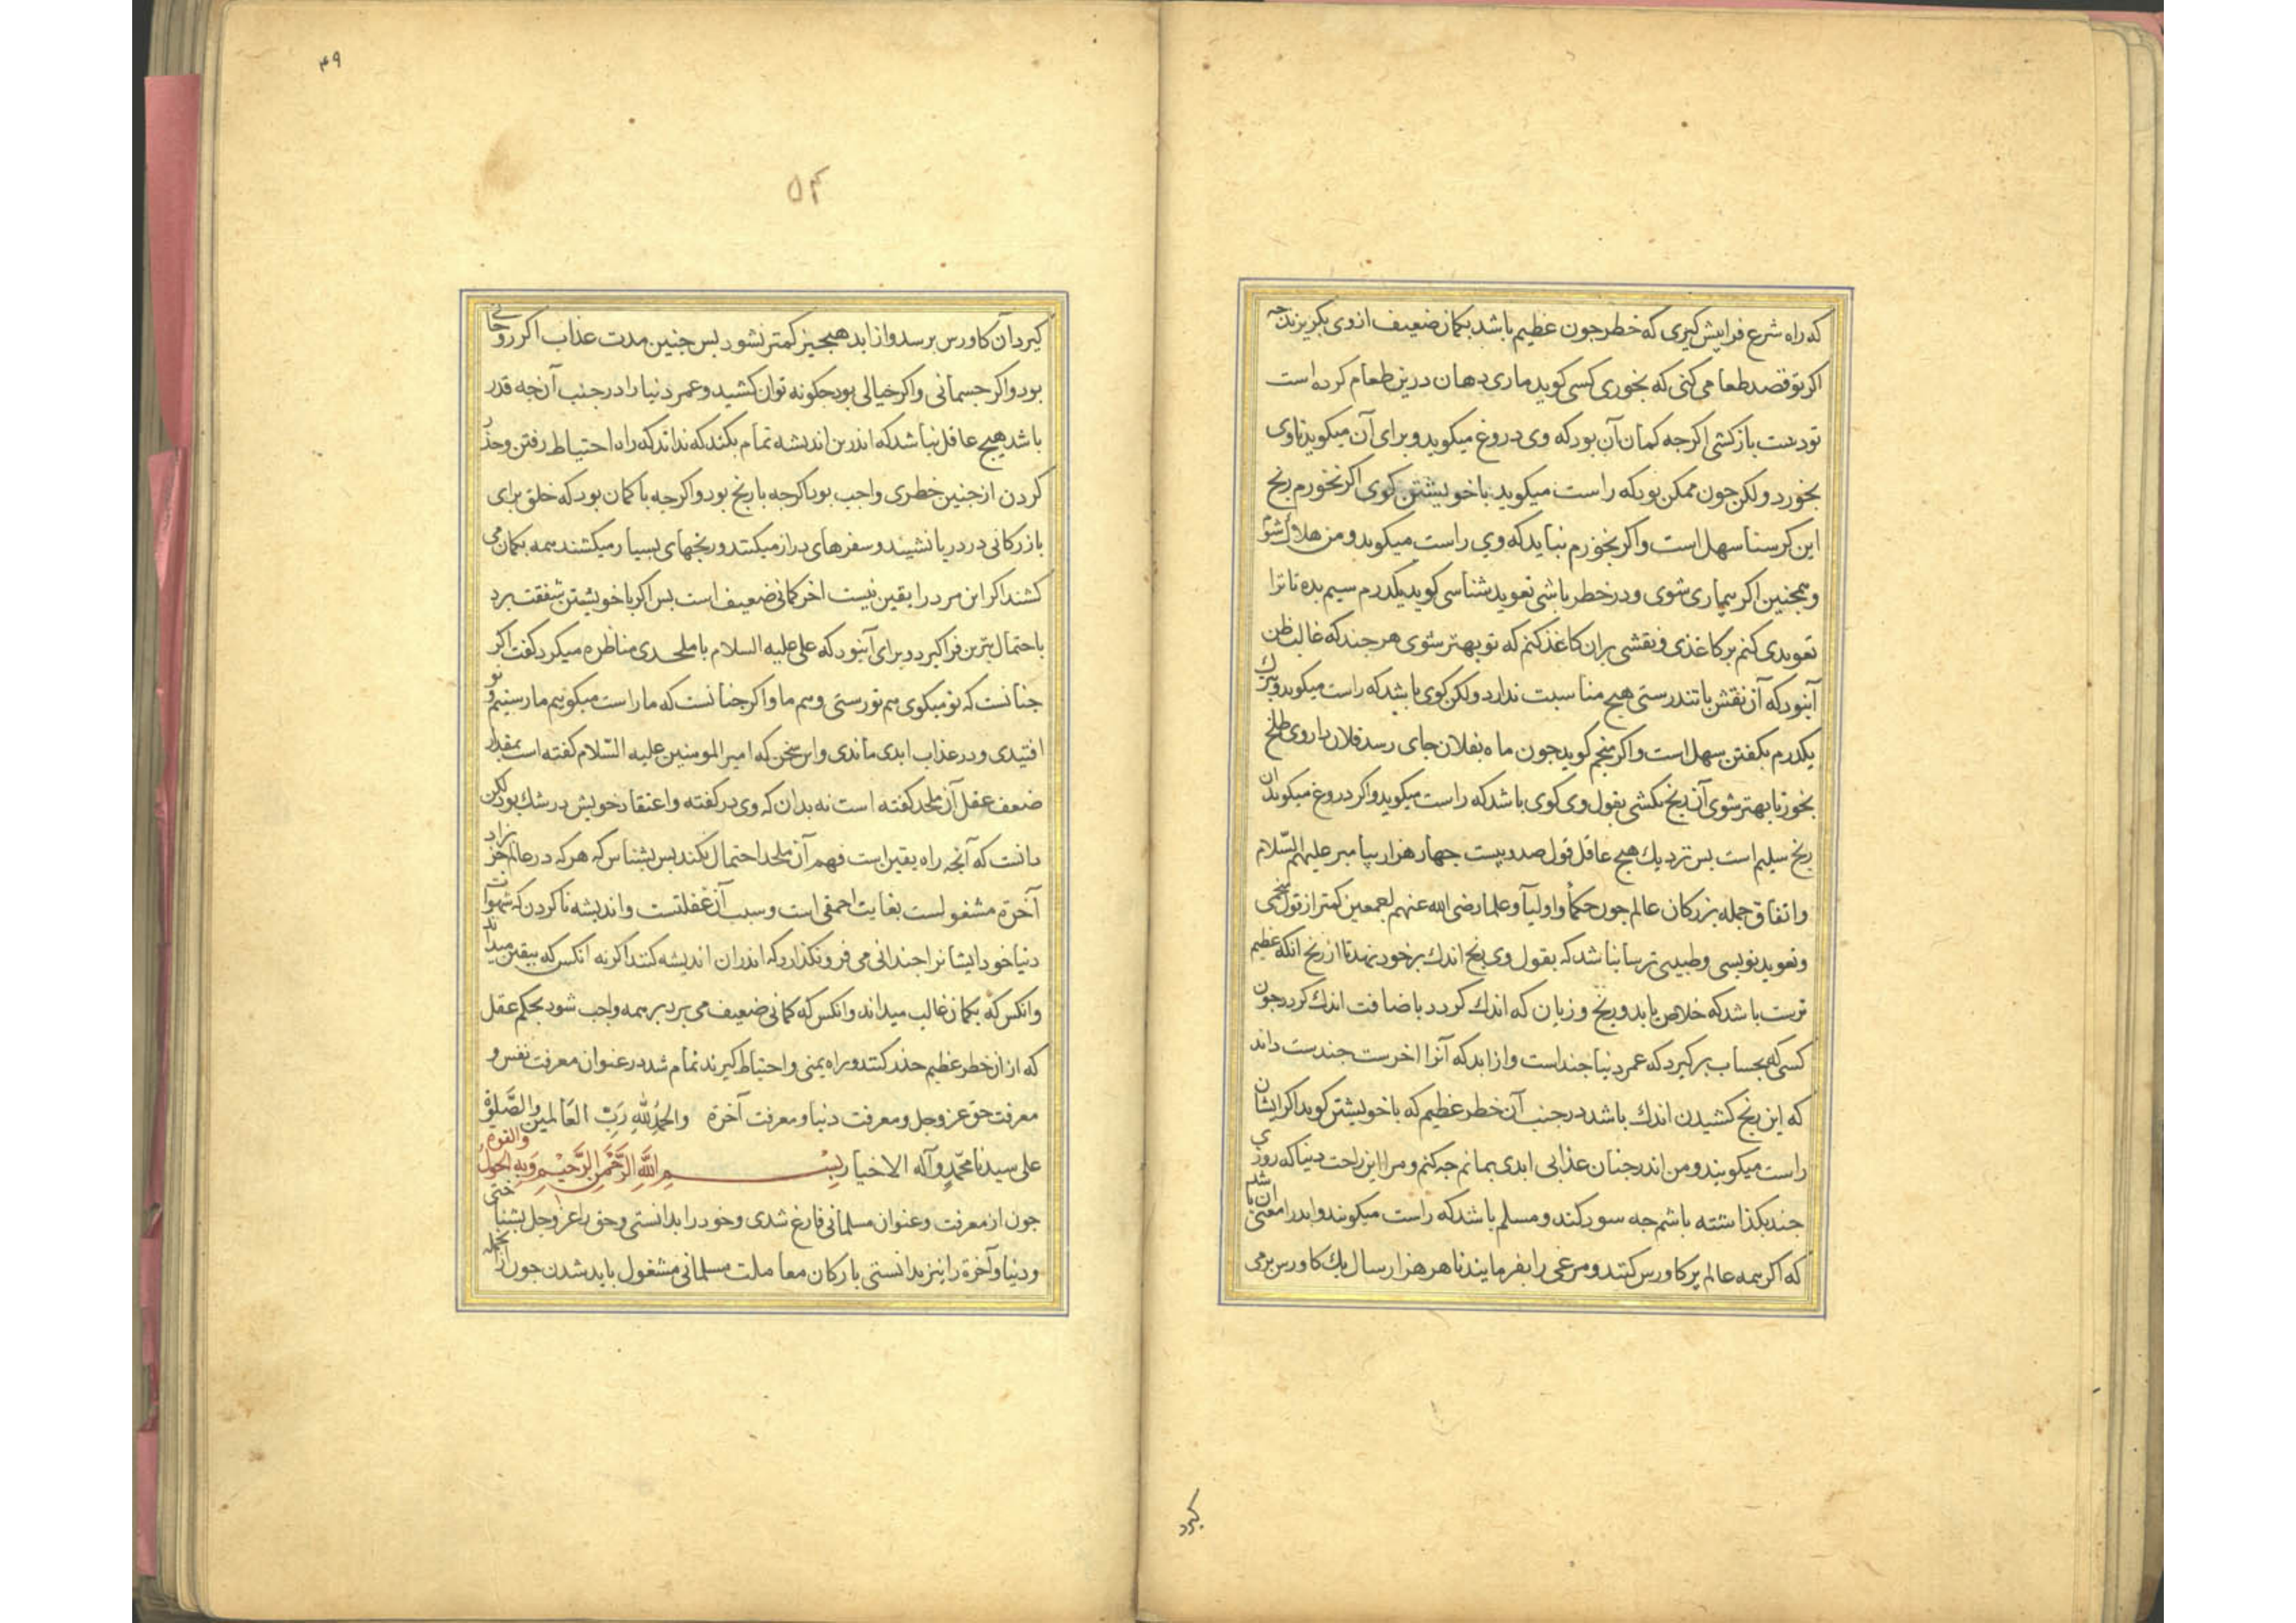 که راه شرع فرا پیش گیری که خطر جون عظیم باشد بکمان ضعیف از وی بگریزند چه
اکر تو قصد طعامی کنی که بخوری کسی کوید ماری دهان درین طعام کرده است
تو دست باز کشی اکرجه کمان آن بود که وی دروغ میکوید و برای آن میکوید تا وی
بخورد ولکن جون ممکن بود که راست میکوید با خویشتن کوی اکر نخورم رنج
این کرسنا سهل است واکر بخورم نباید که وی راست میکوید و من هلاک شوم
وهمجنین اکر بیماری شوی ودر خطر باشی تعوید شناسی کوید یکدرم سیم بده تا ترا
تعویدی کنم بر کاغذی و نقشی بران کاغذ کنم که تو بهتر شوی هر جند که غالب ظن
آنبود که آن نقش با تندرستی هیج مناسبت ندارد ولکن کوی باشد که راست میکوید و ترک
یکدرم بکفتن سهل است واکر منجم کوید جون ماه بفلان جای رسد فلان داروی طلخ
بخور تا بهتر شوی آن رنج بکشی بقول وی کوی باشد که راست میکوید واکر دروغ میکوید ان
رنج سلیم است بس نزدیک هیج عاقل قول صد و بیست جهار هزار پیامبر علیهم السّلام
واتفاق جمله بزرکان عالم جون حکما واولیا و علما رضی الله عنهم اجمعین کمتر از قول منجمی
وتعوید نویسی وطبیبی ترسا نباشد که بقول وی رنج اندک بر خود نهد تا از رنج انکه عظیم
ترست باشد که خلاص یابد و رنج و زیان که اندک کردد باضافت اندک کردد جون
کسی که بحساب برکیرد که عمر دنیا جند است وازا بد که آنرا اخرست جندست داند
که این رنج کشیدن اندک باشد در جنب آن خطر عظیم که با خویشتن کوید اکر ایشان
راست میکویند و من اندر جنان عذابی ابدی بمانم جه کنم و مرا این راحت دنیا که روزی
جند بکذاشته باشم جه سود کند و مسلم باشد که راست میکویند وابد را معنی ان باشد
که اکر همه عالم پر کاورس کنند و مرغی را بفرمایند تا هر هزار سال یک کاورس برمی
کیرد
۴۹
۵۴
کیرد آن کاورس برسد و از ابد هیجیز کمتر نشود بس جنین مدت عذاب اکر روحانی
بود واکر جسمانی واکر خیالی بود جکونه توان کشید و عمر دنیا را در جنب آن جه قدر
باشد هیج عاقل نباشد که اندرین اندیشه تمام بکند که نداند که راه احتیاط رفتن و حذر
کردن از جنین خطری واجب بود اکرجه با رنج بود واکرجه با کمان بود که خلق برای
بازرکانی در دریا نشینند و سفرهای دراز میکنند و رنجهای بسیار میکشند همه بکمان می
کشند اکر این مرد را یقین نیست اخر کمانی ضعیف است بس اکر با خویشتن شفقت برد
باحتمال ترین فرا کیرد و برای آنبود که علی علیه السلام با ملحدی مناظره میکرد کفت اکر
جنانست که تو میکوی هم تو رستی و هم ما واکر جنانست که ما راست میکوییم ما رستیم و تو
افتیدی و در عذاب ابدی ماندی واین سخن که امیر المومنین علیه السّلام کفته است بمقدار
ضعف عقل آن ملحد کفته است نه بدان که وی در کفته واعتقاد خویش در شک بود لکن
دانست که آنجه راه یقین است فهم آن ملحد احتمال نکند بس بشناس که هر که در عالم جز بزاد
آخرة مشغولست بغایت احمقی است وسبب آن غفلتست واندیشه ناکردن که شهوات
دنیا خود ایشانرا جندانی می فرو نکذارد که اندران اندیشه کنند اکرنه انکس که بیقین میداند
وانکس که بکمان غالب میداند وانکس که کمانی ضعیف می برد بر همه واجب شود بحکم عقل
که از ان خطر عظیم حذر کنند و راه یمنی واحتیاط کیرند تمام شد در عنوان معرفت نفس و
معرفت حق عز وجل و معرفت دنیا و معرفت آخرة والحَمْدُ لِلّهِ رَبِّ العَالَمِین والصَّلوة
علی سیدنا محمّد وآله الاخیار بِسْمِ اللَّهِ الرَّحْمنِ الرَّحیْمِ وَبِهِ الحَولُ والقوه
جون از معرفت وعنوان مسلمانی فارغ شدی و خود را بدانستی و حق را عز وجل بشناختی
و دنیا و آخرة را نیز بدانستی بارکان معاملت مسلمانی مشغول باید شدن جون از جمله